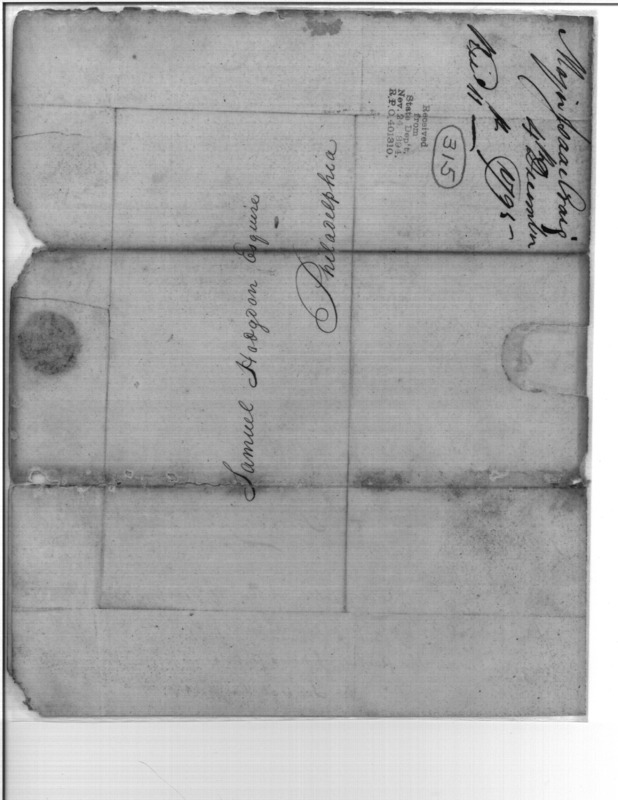 Major Isaac Craig
4 December
Rec'd 11 — do. 1795—
315
Received
from
State Dep't.
Nov 24 1894.
R.P.O. 401810.
Samuel Hodgdon Esquire
Philadelphia